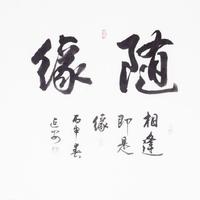 随缘
相逢
即是
缘
丙申春